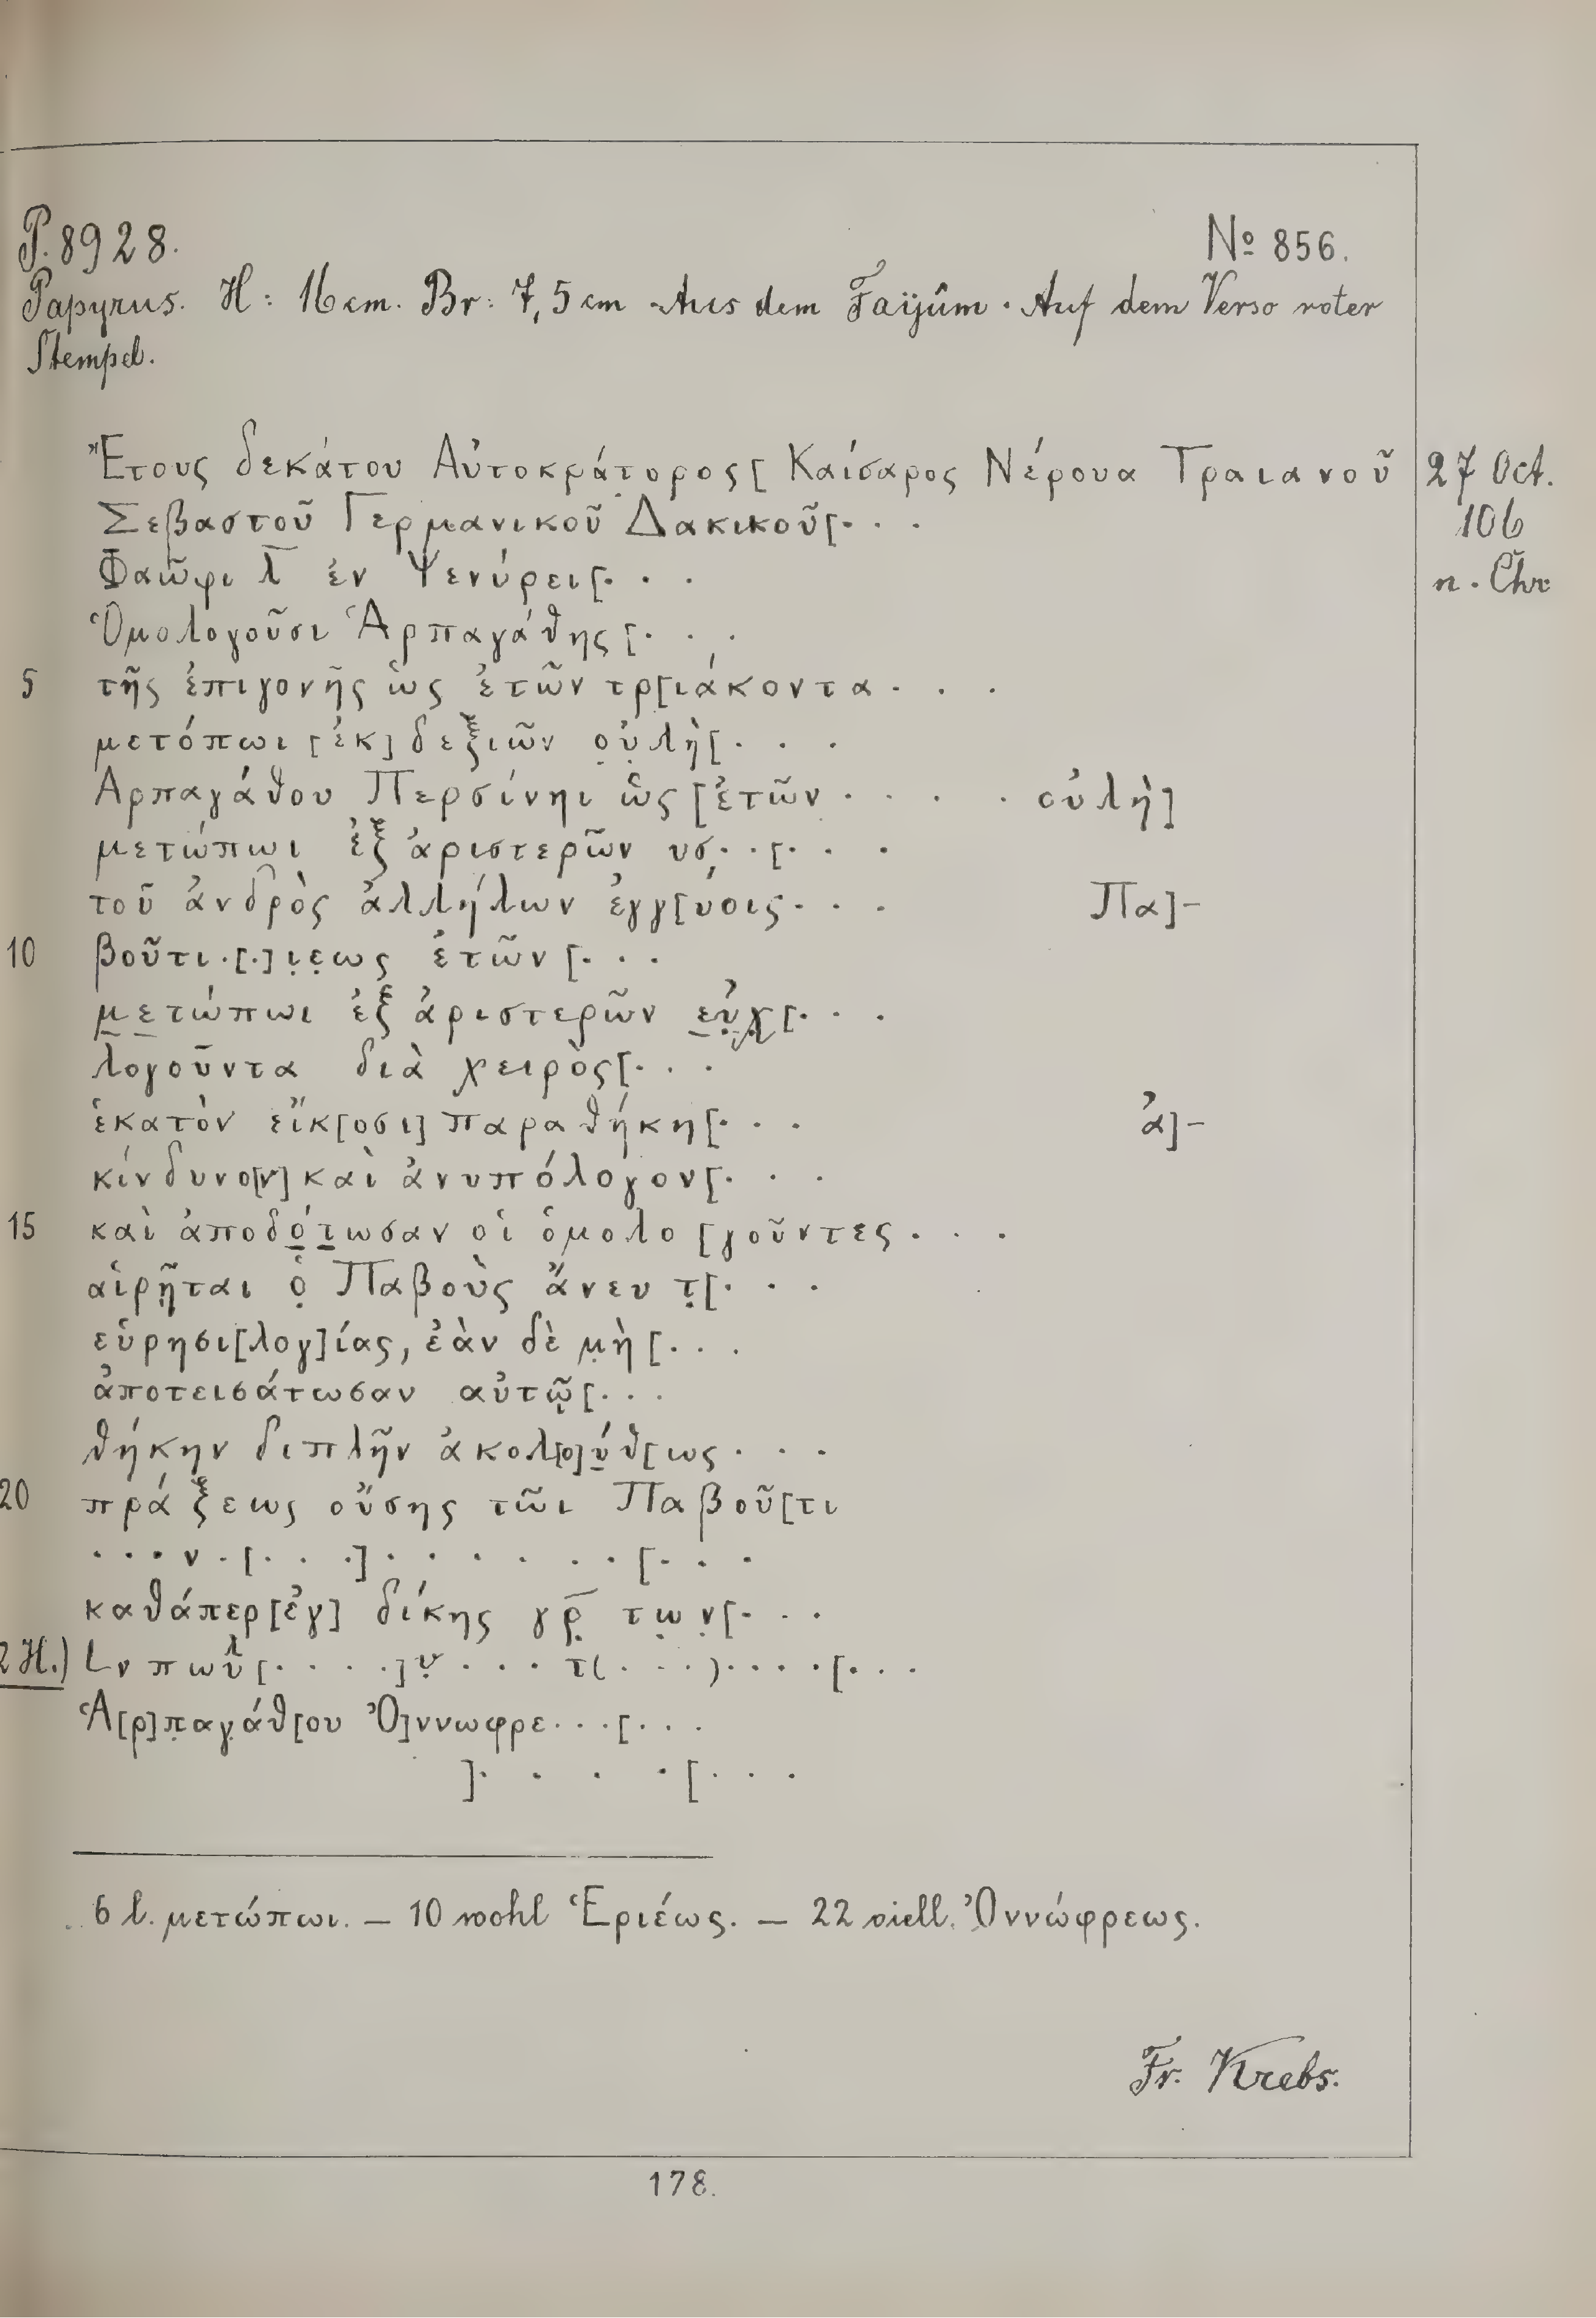 P. 8928. № 856.
Papyrus. H: 16 cm. Br: 7,5 cm Aus dem Faijûm. Auf dem Verso roter
Stempel.
Ἔτους δεκάτου Αὐτοκράτορος[ Καίσαρος Νέρουα Τραιανοῦ 27 Oct.
Σεβαστοῦ Γερμανικοῦ Δακικοῦ[. . . 106
Φαῶφι λ̅ ἐν Ψενύρει[. . . n. Chr.
Ὁμολογοῦσι Ἁρπαγάθης[. . .
5 τῆς ἐπιγονῆς ὡς ἐτῶν τρ[ιάκοντα . . .
μετόπωι [ἐκ] δεξιῶν ο̣ὐ̣λὴ[. . .
Αρπαγάθου Περσίνηι ὡς [ἐτῶν . . . . οὐλὴ]
μετώπωι ἐξ ἀριστερῶν υσ̣..[. . .
τοῦ ἀνδρὸς ἀλλήλων ἐγγ[ύοις . . . Πα]-
10 βοῦτι .[.]ι̣ε̣ως ἐτῶν [. . .
μ̣ε̣τώπωι ἐξ ἀριστερῶν ε̣ὐ̣χ̣[. . .
λογοῦντα διὰ χειρὸς[. . .
ἑκατὸν εἴκ[οσι] παραθήκη[. . . ἀ]-
κίνδυνο[ν] καὶ ἀνυπόλογον[. . .
15 καὶ ἀποδό̣τ̣ωσαν οἱ ὁμολο[γοῦντες . . .
αἱρῆ̣ται ὁ̣ Παβοὺς ἄνευ τ̣[. . .
εὑρησι[λογ]ίας, ἐὰν δὲ μ̣ὴ [. . .
ἀποτεισάτωσαν αὐτῷ[. . .
θήκην διπλῆν ἀκολ[ο]ύ̣θ[ως . . .
20 πράξεως οὔσης τῶι Παβοῦ[τι
. . . ν . [. . .] . . . . . . [. . .
καθάπερ [ἐγ] δίκης γρ̣̅ τω̣ν̣[. . .
2 H.) L ν πωῦλ[. . . . .]ν̣ . . . τ( . . . ) . . . . [. . .
Ἁ[ρ]π̣αγ̣άθ[ου Ὀ]ννωφρε . . . [. . .
] . . . . [. . .
6 l. μετώπωι. — 10 wohl Ἑριέως. — 22 viell. Ὀννώφρεως.
Fr. Krebs.
178.